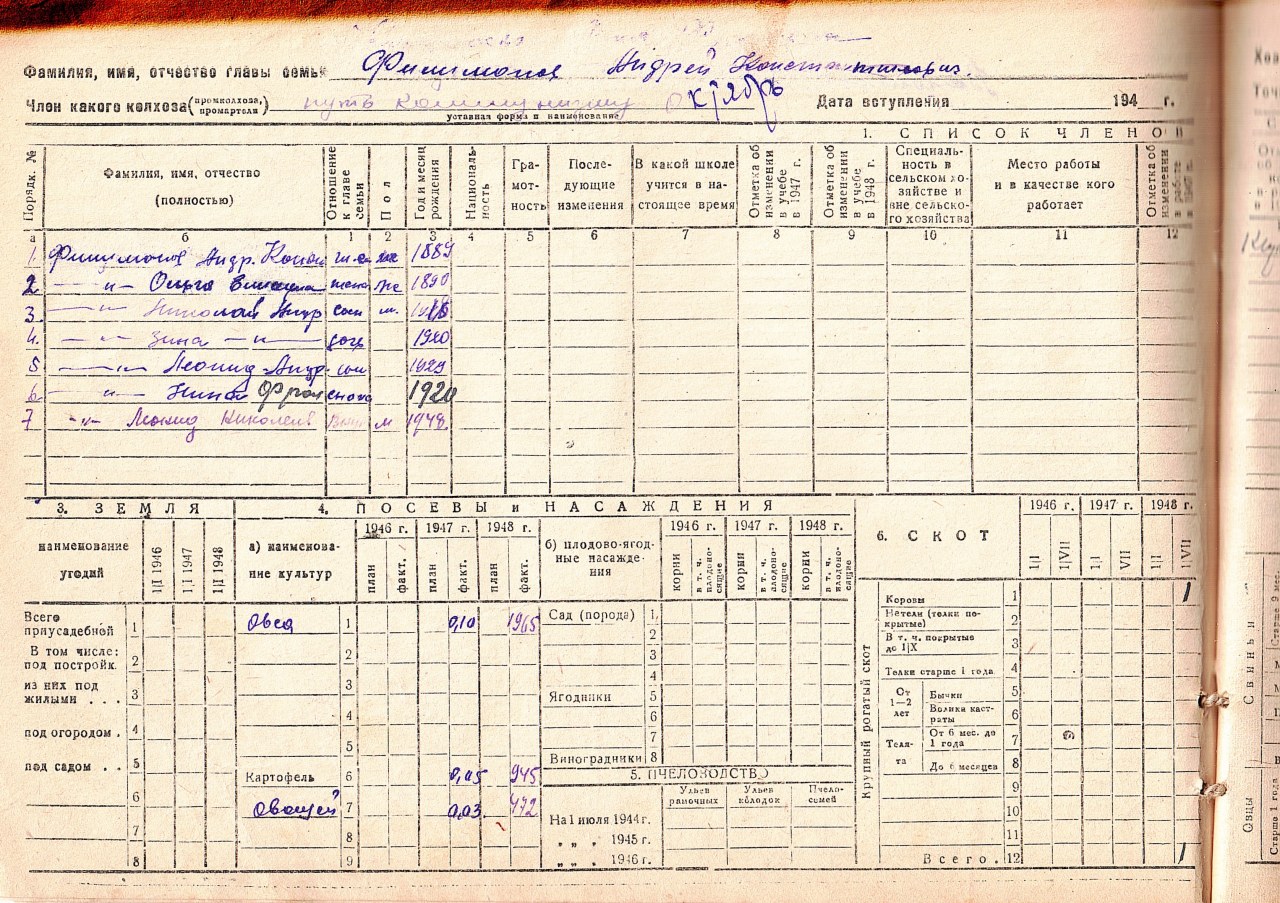 Фамилия, имя, отчество главы семьи Филимонов Андрей Константинович.
Член какого колхоза (промколхоза, промартели) путь коммунизму октябрь Дата вступления 194 г.
уставная форма и наименование
1. СПИСОК ЧЛЕНОВ
Порядк. №
Фамилия, имя, отчество (полностью)
Отношение к главе семьи
Пол
Год и месяц рождения
Националь-ность
Гра-мот-ность
После-дующие изменения
В какой школе учится в на-стоящее время
Отметка об изменении в учебе в 1947 г.
Отметка об изменении в учебе в 1948 г.
Специаль-ность в сельском хо-зяйстве и вне сельско-го хозяйства
Место работы и в качестве кого работает
Отметка об изменении
а б 1 2 3 4 5 6 7 8 9 10 11 12
1. Филимонов Андр. 1889
2 —"— Ольга жена же 1890
3. —"— Николай Андр сын м.
4. —"— Зина —"— дочь 1920
5 —"— Леонид Андр. сын 1929
6. —"— Нина сноха 1920
7 -"- Леонид Николаев м 1948.
3. ЗЕМЛЯ
наименование угодий
1|I 1946
1|I 1947
1|I 1948
Всего приусадебной 1
В том числе: под постройк. 2
из них под жилыми . . . 3
под огородом . 4
под садом . . 5
6
7
8
4. ПОСЕВЫ и НАСАЖДЕНИЯ
а) наименова-ние культур
1946 г. 1947 г. 1948 г.
план факт. план факт. план факт.
Овса 1 0,10 1965
2
3
4
5
Картофель 6 0,05 945
Овощей 7 0,03 472
8
9
б) плодово-ягод-ные насажде-ния
1946 г. 1947 г. 1948 г.
корни в т. ч. плодоно-сящие корни в т. ч. плодоно-сящие корни в т. ч. плодоно-сящие
Сад (порода) 1
2
3
4
Ягодники 5
6
7
Виноградники 8
5. ПЧЕЛОВОДСТВО
Ульев рамочных
Ульев колодок
Пчело-семей
На 1 июля 1944 г.
" " " 1945 г.
" " " 1946 г.
6. СКОТ
1946 г. 1947 г. 1948 г.
1|I 1|VII 1|I VII 1|I 1|VII
Крупный рогатый скот
Коровы 1 1
Нетели (телки по-крытые) 2
В т. ч. покрытые до 1|X 3
Телки старше 1 года 4
От 1—2 лет
Бычки 5
Волики каст-раты 6
Теля-та
От 6 мес. до 1 года 7
До 6 месяцев 8
9
10
11
Всего . 12 1
Свиньи
Овцы
Старше 1 года